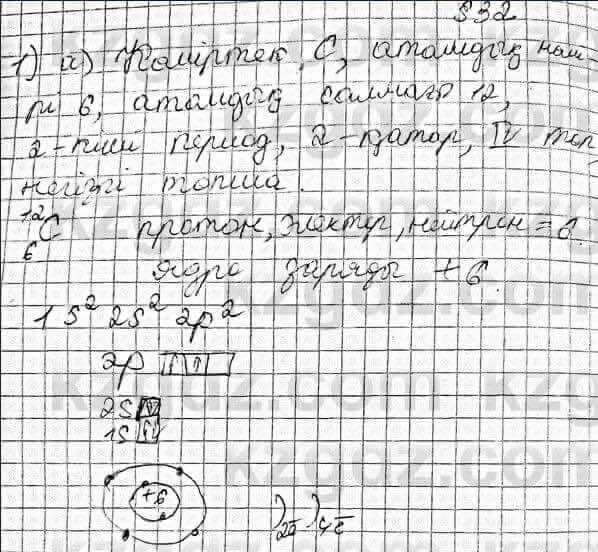 §32
1) а) Көміртек, C, атомдық нөмі-
рі 6, атомдық салмағы 12,
2-пші период, 2-қатар, IV топ,
негізгі топша.
12 6 C протон, электр, нейтрон = 6.
ядро заряды +6.
1s² 2s² 2p²
2p ↑ ↑
2s ↑↓
1s ↑↓
+6 ) 2ē ) 4ē
kzgdz.com